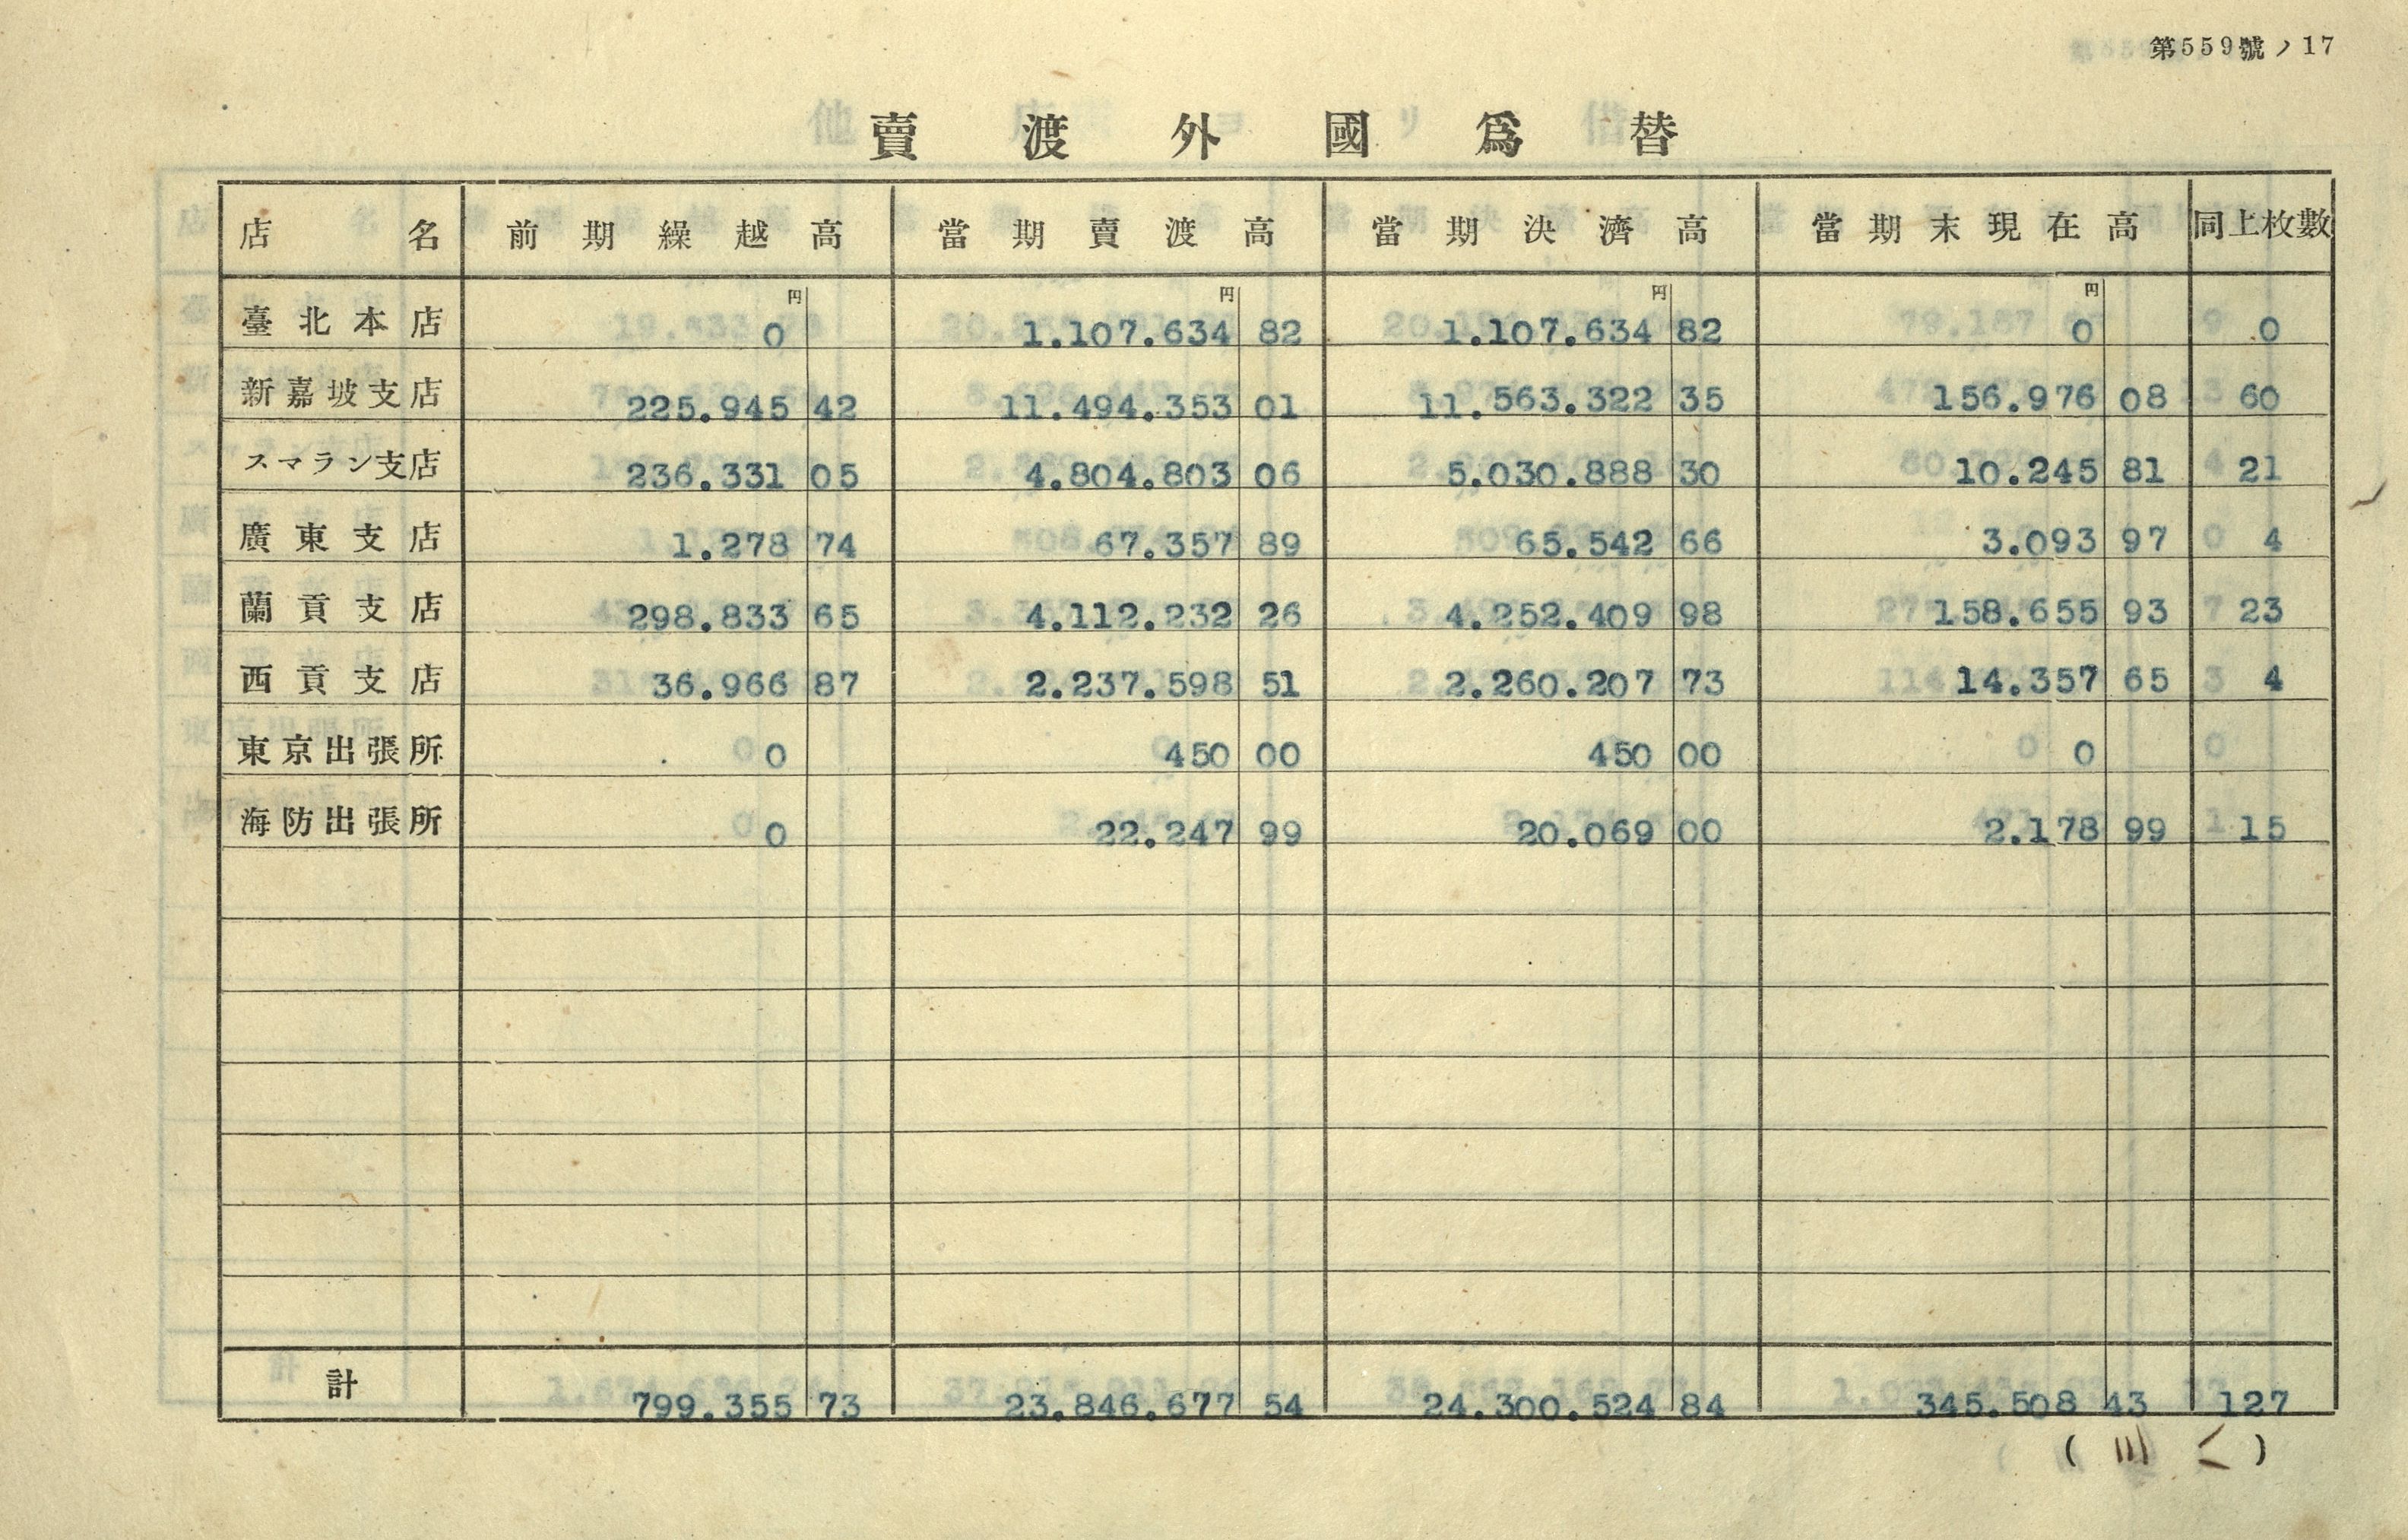 第559號ノ17
賣渡外國爲替
店名 前期繰越高 當期賣渡高 當期決濟高 當期末現在高 同上枚數
円 円 円 円
臺北本店 0 1.107.634 82 1.107.634 82 0 0
新嘉坡支店 225.945 42 11.494.353 01 11.563.322 35 156.976 08 60
スマラン支店 236.331 05 4.804.803 06 5.030.888 30 10.245 81 21
廣東支店 1.278 74 67.357 89 65.542 66 3.093 97 4
蘭貢支店 298.833 65 4.112.232 26 4.252.409 98 158.655 93 23
西貢支店 36.966 87 2.237.598 51 2.260.207 73 14.357 65 4
東京出張所 0 450 00 450 00 0
海防出張所 0 22.247 99 20.069 00 2.178 99 15
計 799.355 73 23.846.677 54 24.300.524 84 345.508 43 127